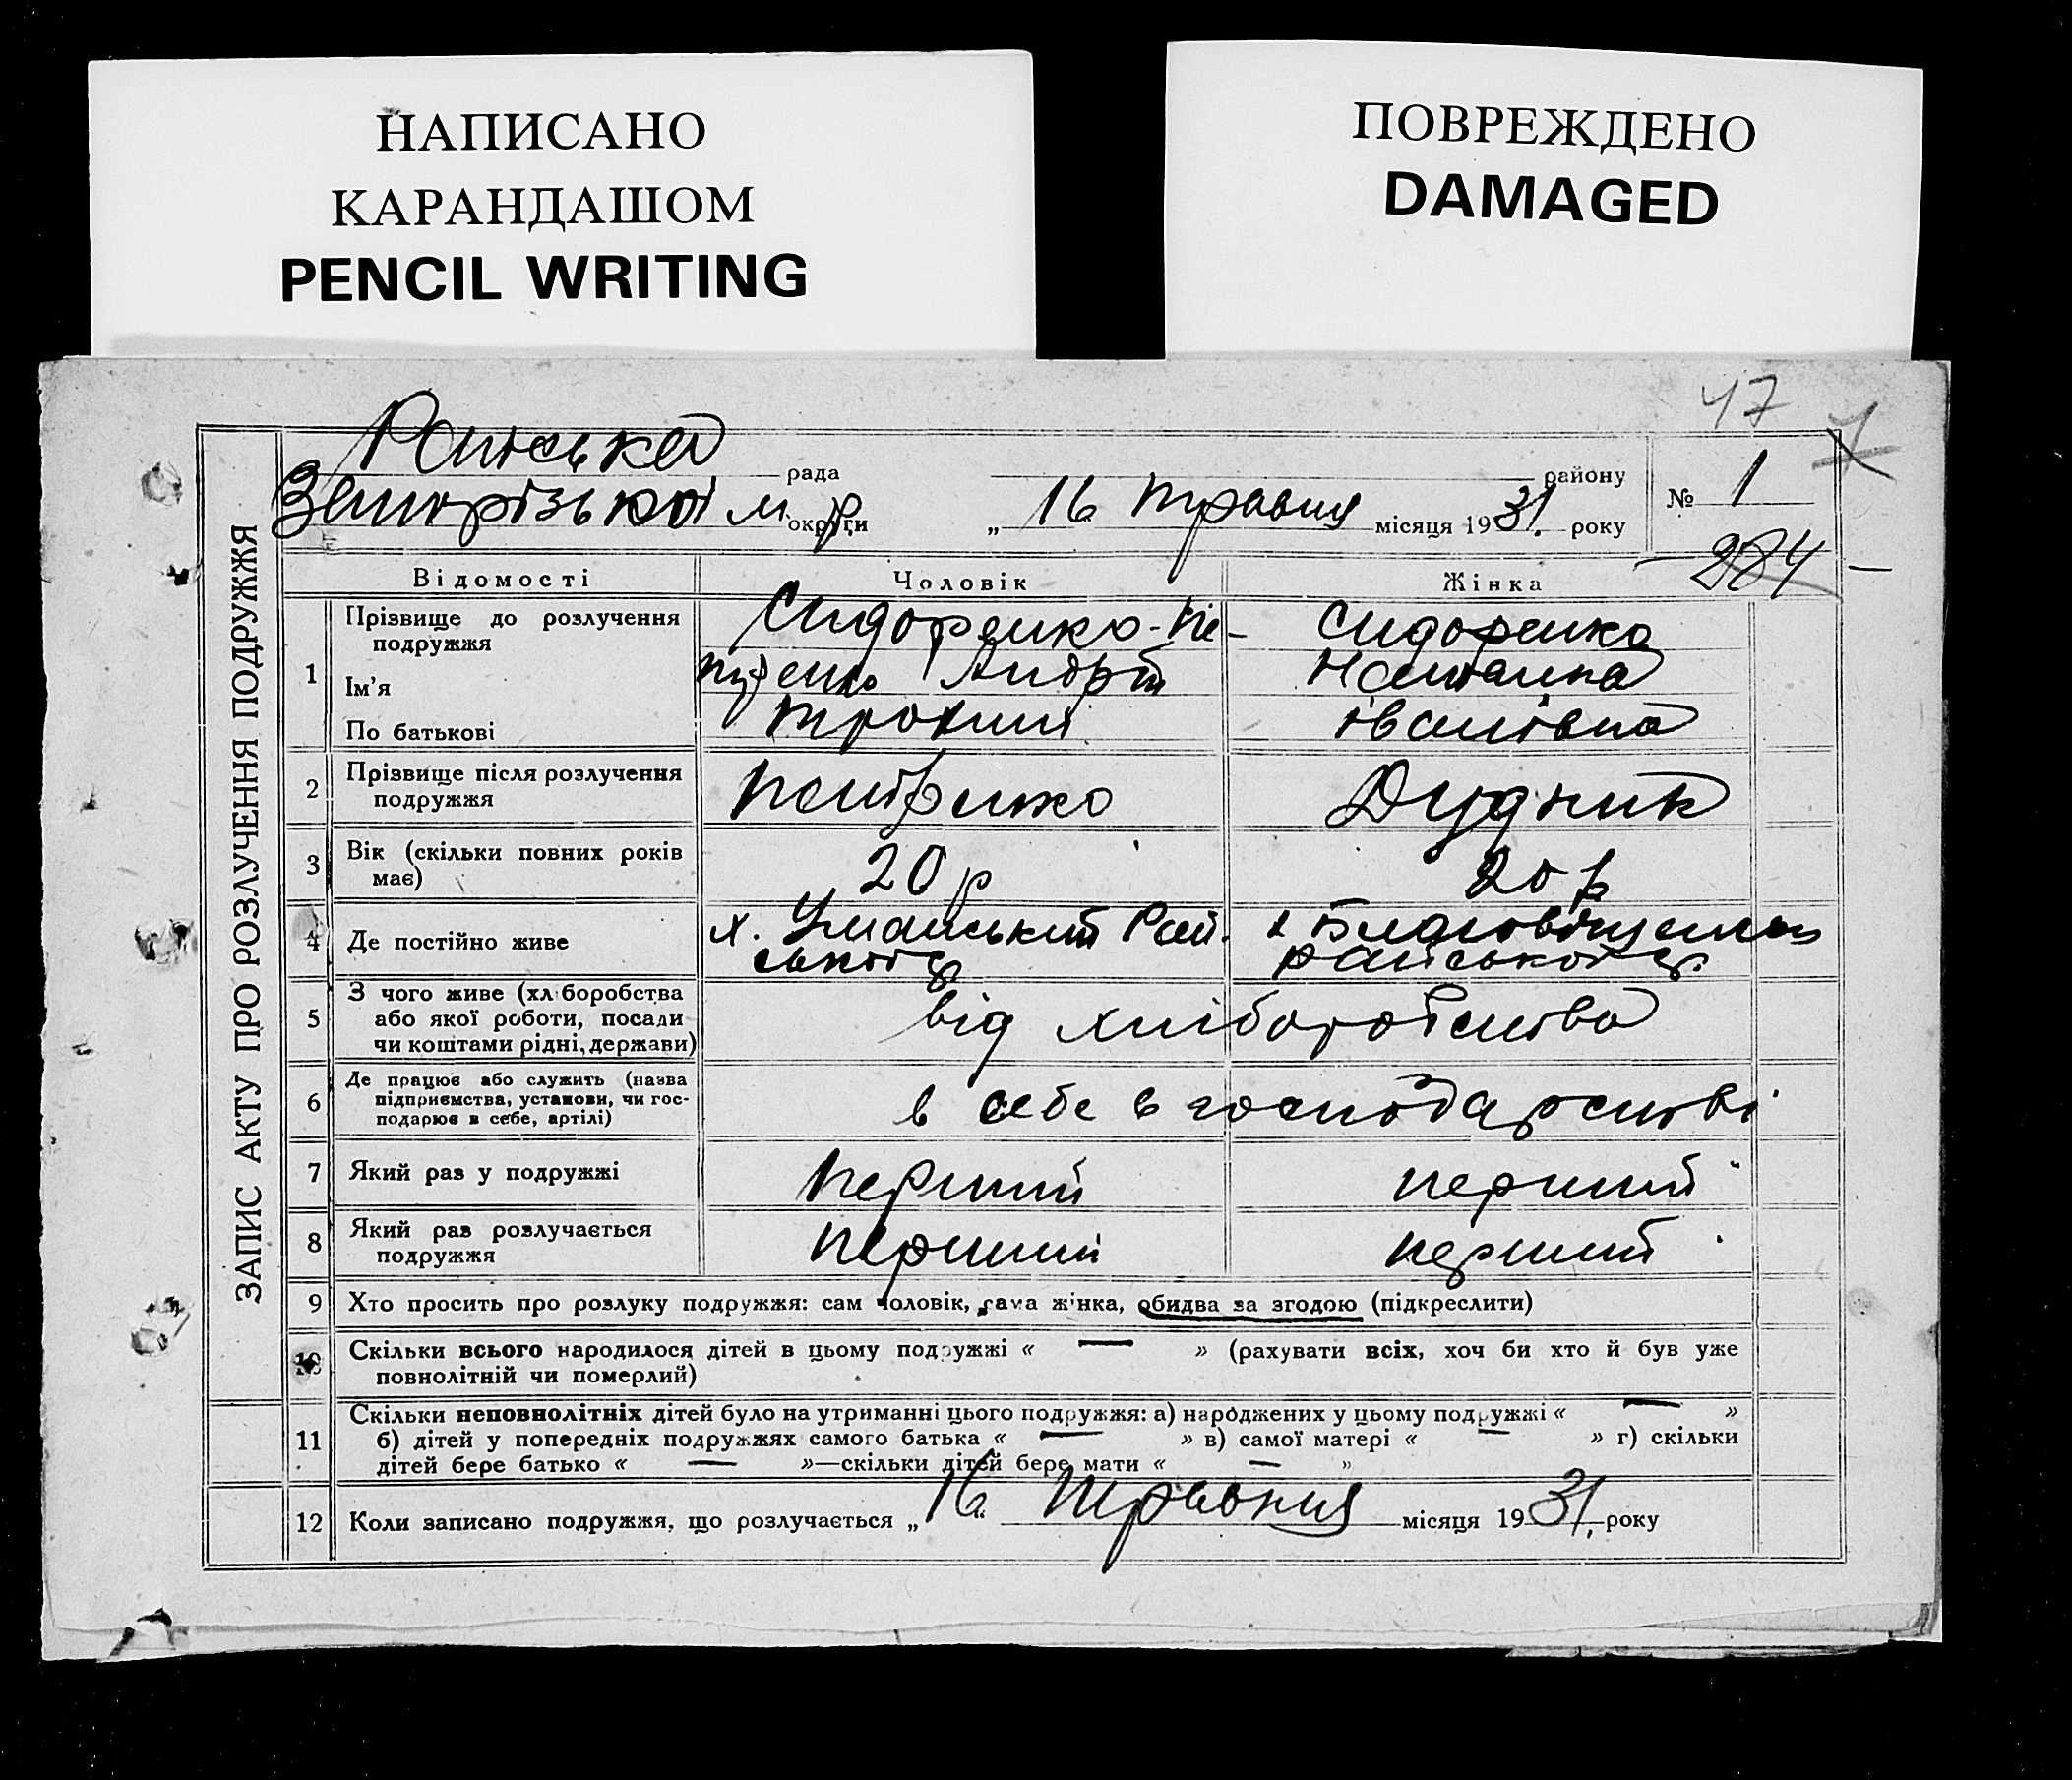 НАПИСАНО
КАРАНДАШОМ
PENCIL WRITING
ПОВРЕЖДЕНО
DAMAGED
47
1
ЗАПИС АКТУ ПРО РОЗЛУЧЕННЯ ПОДРУЖЖЯ
Раиська рада району
№ 1
Запорізької м. р. округи „ 16 травня місяця 1931. року
284
Відомості Чоловік Жінка
1 Прізвище до розлучення подружжя Сидоренко- Сидоренко
Ім’я Андрій Наталка
По батькові Трохим Івановна
2 Прізвище після розлучення подружжя Дудник
3 Вік (скільки повних років має) 20 р 20 р
4 Де постійно живе х. Уманський Рай. х Благовіщенка
ської р Райської р
5 З чого живе (хліборобства або якої роботи, посади чи коштами рідні, держави) від хліборобства
6 Де працює або служить (назва підприємства, установи, чи господарює в себе, артілі) в себе в господарстві
7 Який раз у подружжі перший перший
8 Який раз розлучається подружжя перший перший
9 Хто просить про розлуку подружжя: сам чоловік, сама жінка, обидва за згодою (підкреслити)
10 Скільки всього народилося дітей в цьому подружжі « — » (рахувати всіх, хоч би хто й був уже
повнолітній чи померлий)
11 Скільки неповнолітніх дітей було на утриманні цього подружжя: а) народжених у цьому подружжі « — »
б) дітей у попередніх подружжях самого батька « — » в) самої матері « — » г) скільки
дітей бере батько « — »—скільки дітей бере мати « — »
12 Коли записано подружжя, що розлучається „ 16 травня місяця 1931. року